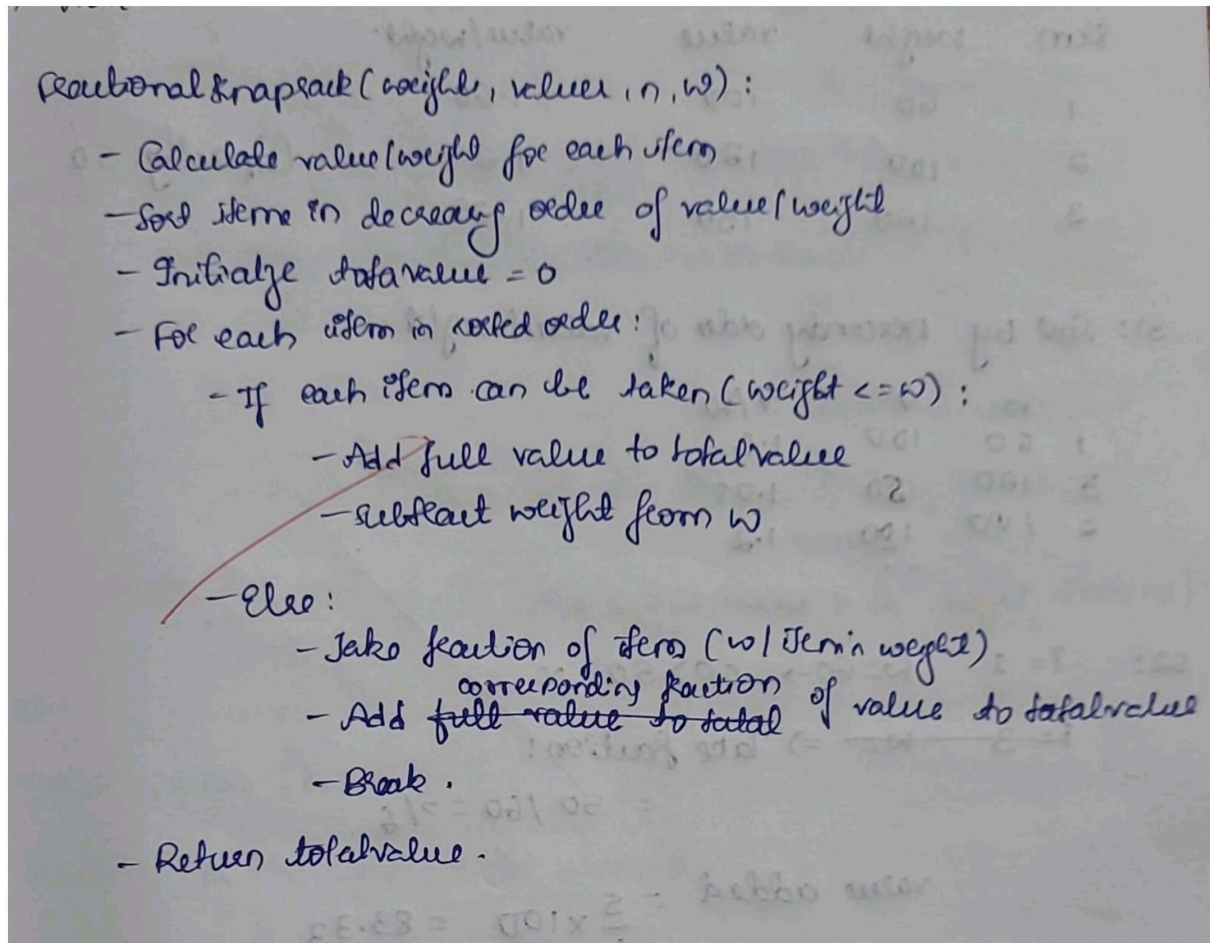 Fractional Knapsack (weights, values, n, W):
- Calculate value/weight for each item
- Sort items in decreasing order of value/weight
- Initialize totalvalue = 0
- For each item in sorted order:
- If each item can be taken (weight <= W):
- Add full value to totalvalue
- subtract weight from W
- Else:
- Take fraction of item (W/Item's weight)
corresponding fraction
- Add full value to total of value to totalvalue
- Break.
- Return totalvalue.